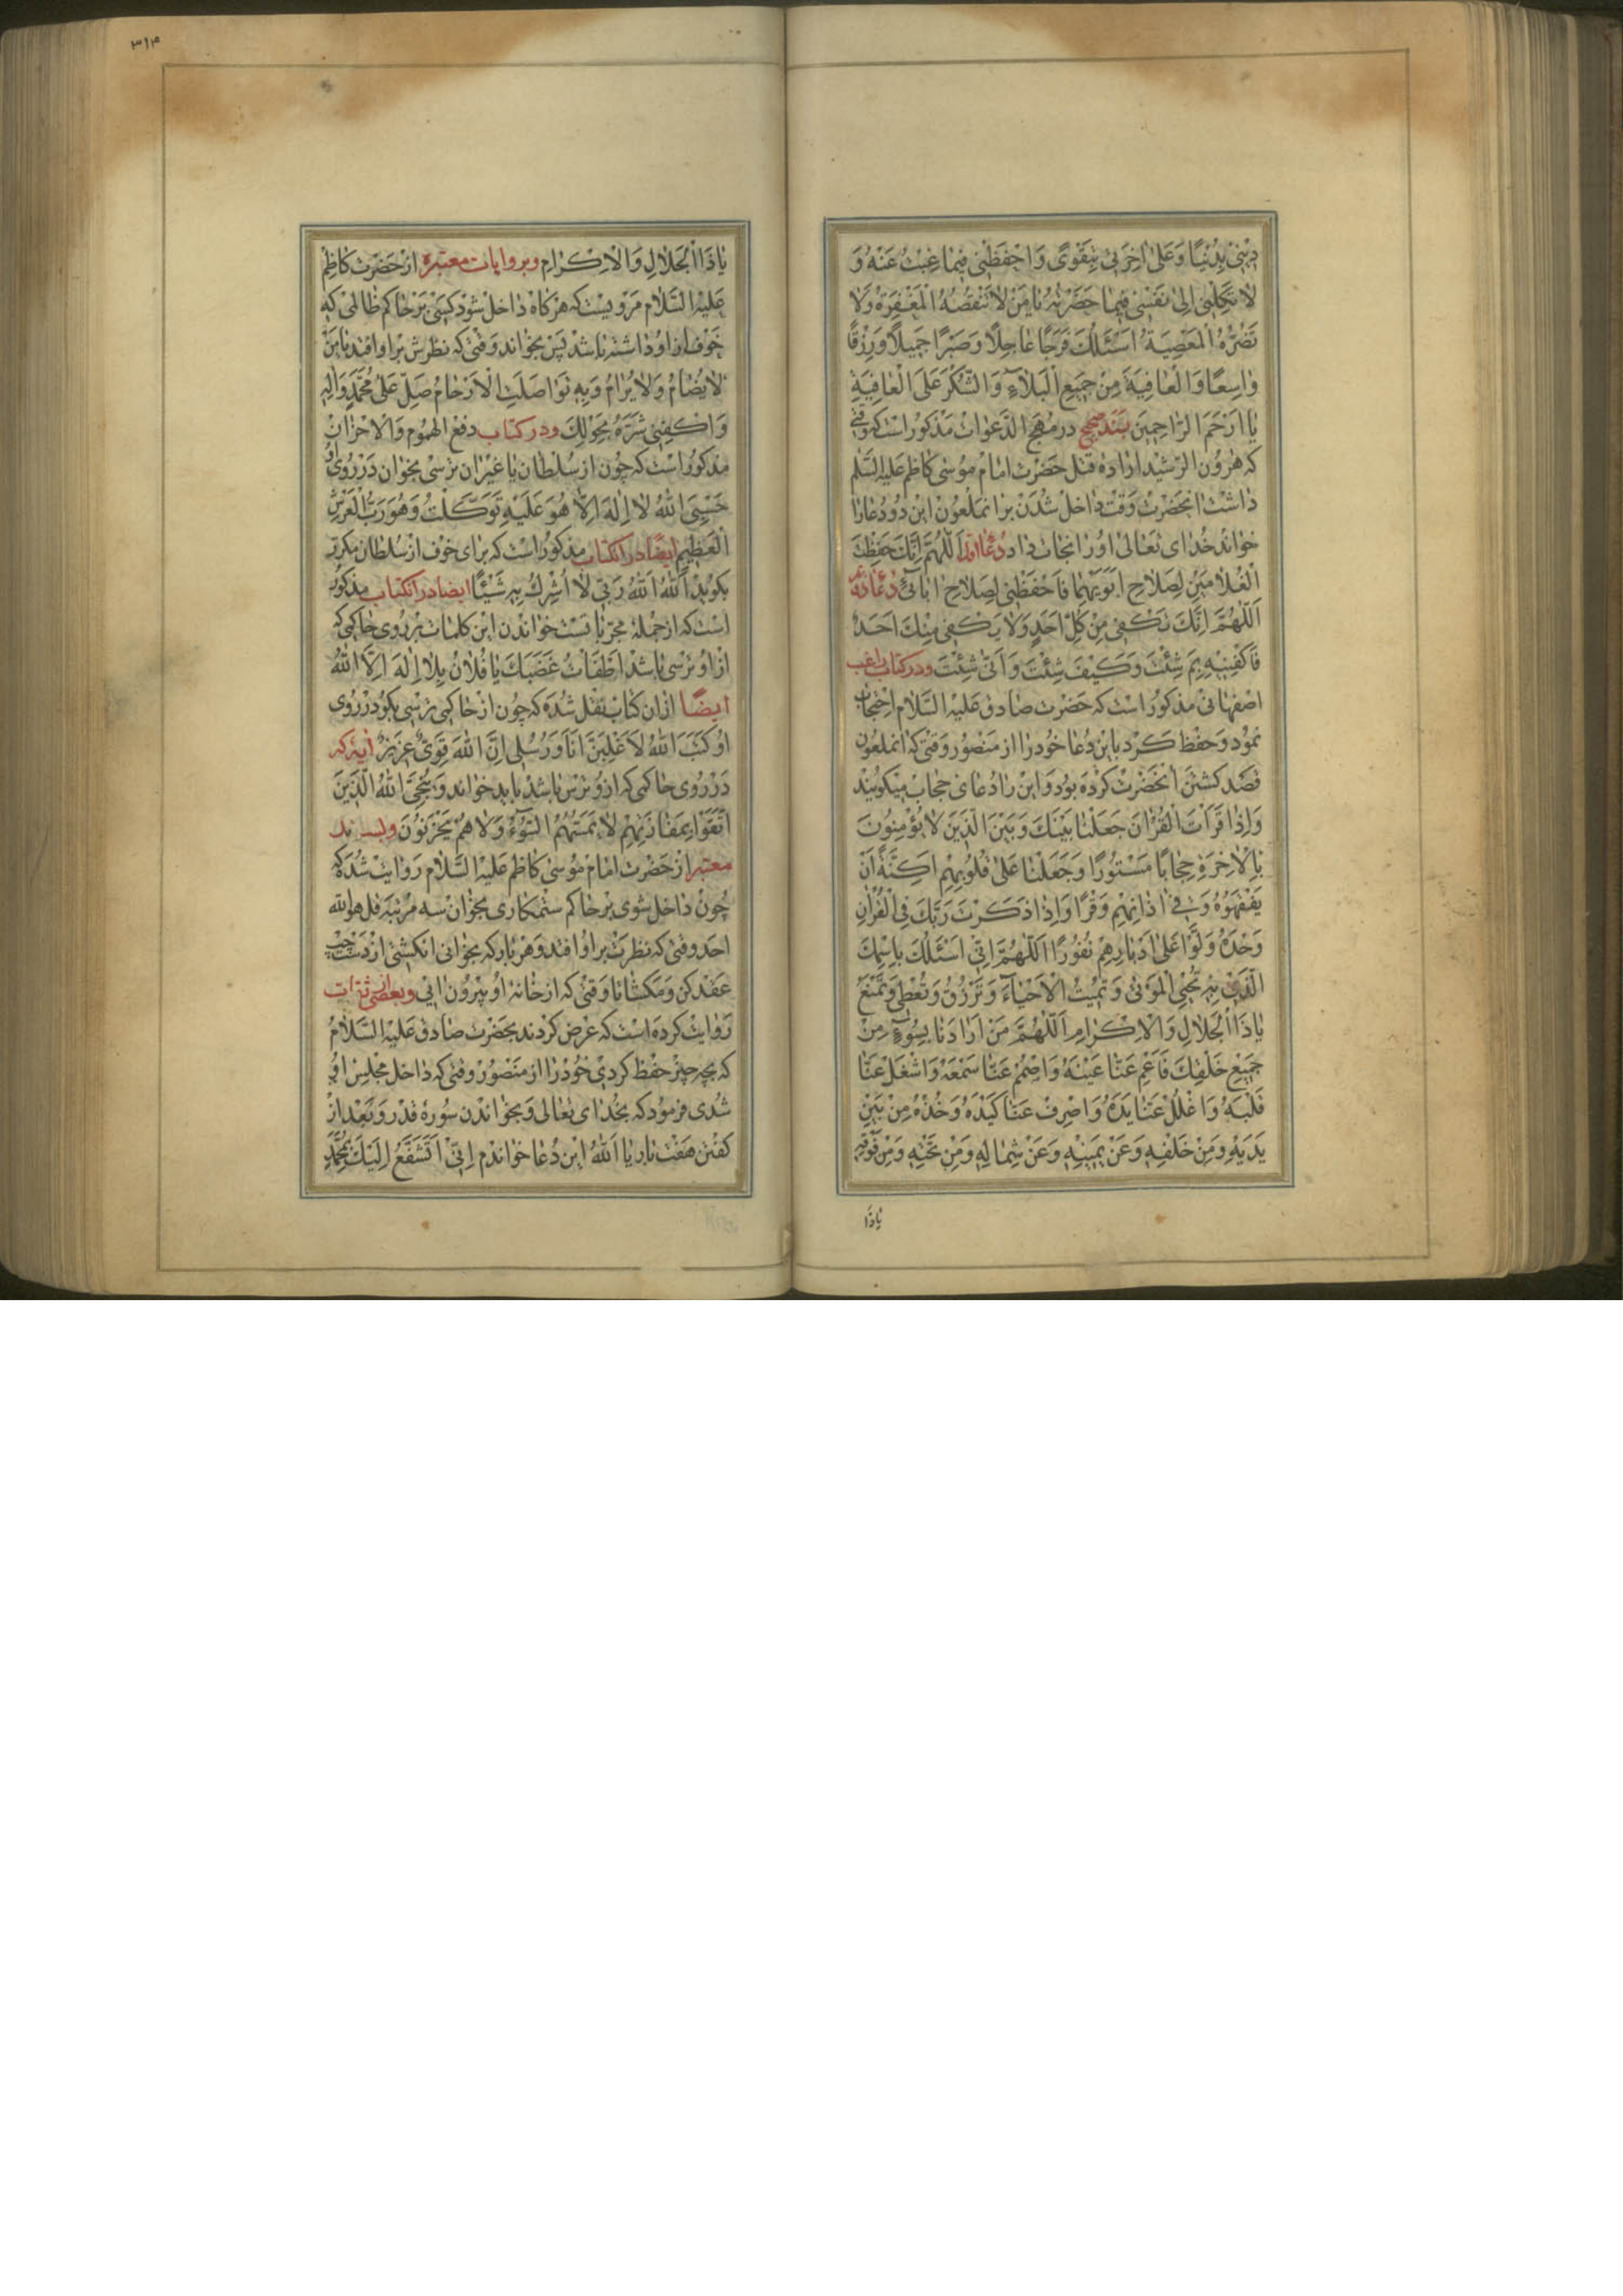 دینی بدنیا و علی اخرتی بتقوی و احفظنی فیما غبت عنه و
لا تکلنی الی نفسی فیما حضرته یا من لا تنقصه المغفرة ولا
تضره المعصیة اسئلك فرجا عاجلا و صبرا جمیلا و رزقا
واسعا و العافیة من جمیع البلاء و الشکر علی العافیة
یا ارحم الراحمین بسند صحیح در مهج الدعوات مذکور است که وقتی
که هرون الرشید اراده قتل حضرت امام موسی کاظم علیه السلم
داشت انحضرت وقت داخل شدن بر انملعون این دو دعا را
خواند خدای تعالی او را نجات داد دعاء اول اللهم انك حفظت
الغلامین لصلاح ابویهما فاحفظنی لصلاح ابائی دعاء دویم
اللهم انك تکفی من کل احد ولا یکفی منك احد
فاکفنیه بم شئت و کیف شئت و انی شئت و در کتاب راغب
اصفهانی مذکور است که حضرت صادق علیه السلام احتجاب
نمود و حفظ کرد باین دعا خود را از منصور وقتی که انملعون
قصد کشتن انحضرت کرده بود و این را دعای حجاب میکویند
و اذا قرات القران جعلنا بینك و بین الذین لا یؤمنون
بالاخرة حجابا مستورا و جعلنا علی قلوبهم اکنة ان
یفقهوه و فی اذانهم وقرا و اذا ذکرت ربك فی القران
وحده ولوا علی ادبارهم نفورا اللهم انی اسئلك باسمك
الذی به تحیی الموتی و تمیت الاحیاء و ترزق و تعطی و تمنع
یا ذا الجلال و الاکرام اللهم من ارادنا بسوء من
جمیع خلقك فاعم عنا عینه و اصمم عنا سمعه و اشغل عنا
قلبه و اغلل عنا یده و اصرف عنا کیده و خذه من بین
یدیه و من خلفه و عن یمینه و عن شماله و من تحته و من فوقه
یا ذا
۳۱۴
یا ذا الجلال و الاکرام و بروایات معتبره از حضرت کاظم
علیه السلام مرویست که هرکاه داخل شود کسی بر حاکم ظالمی که
خوف از او داشته باشد پس بخواند وقتی که نظرش بر او افتد یا من
لا یضام ولا یرام و به تواصلت الارحام صل علی محمد و اله
و اکفنی شره بحولك و در کتاب دفع الهموم و الاحزان
مذکور است که چون از سلطان یا غیر ان ترسی بخوان در روی او
حسبی الله لا اله الا هو علیه توکلت و هو رب العرش
العظیم ایضا در انکتاب مذکور است که برای خوف از سلطان مکرر
بکوید الله الله ربی لا اشرك به شیئا ایضا در انکتاب مذکور
است که از جمله مجربا تست خواندن این کلمات بر روی حاکمی که
از او ترسی باشد اطفات غضبك یا فلان بلا اله الا الله
ایضا از ان کتاب نقل شده که چون از حاکمی ترسی بکو در روی
او کتب الله لاغلبن انا و رسلی ان الله قوی عزیز ایه که
در روی حاکمی که ازو ترس باشد باید خواند و ینجی الله الذین
اتقوا بمفازتهم لا یمسهم السوء ولا هم یحزنون و بسند
معتبر از حضرت امام موسی کاظم علیه السلام روایت شده که
چون داخل شوی بر حاکم ستمکاری بخوان سه مرتبه قل هو الله
احد وقتی که نظرت بر او افتد و هر بار که بخوانی انکشتی از دست چپ
عقد کن و مکشا تا وقتی که از خانه او بیرون ایی و بعضی از ثقات
روایت کرده است که عرض کردند بحضرت صادق علیه السلام
که بچه چیز حفظ کردی خود را از منصور وقتی که داخل مجلس او
شدی فرمود که بخدای تعالی و بخواندن سوره قدر و بعد از
کفتن هفت بار یا الله این دعا خواندم انی اتشفع الیك بمحمد